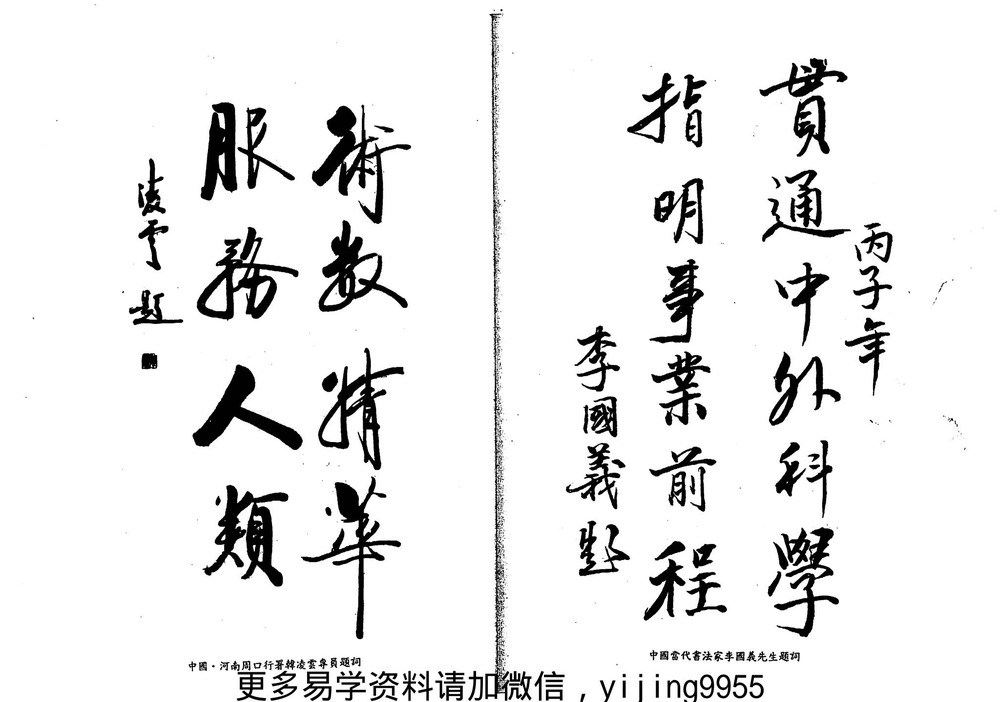 丙子年
貫通中外科學
指明事業前程
李國義題
中國當代書法家李國義先生題詞
術数精華
服務人類
凌雲题
中國·河南周口行署韓凌雲專員題詞
更多易学资料请加微信，yijing9955